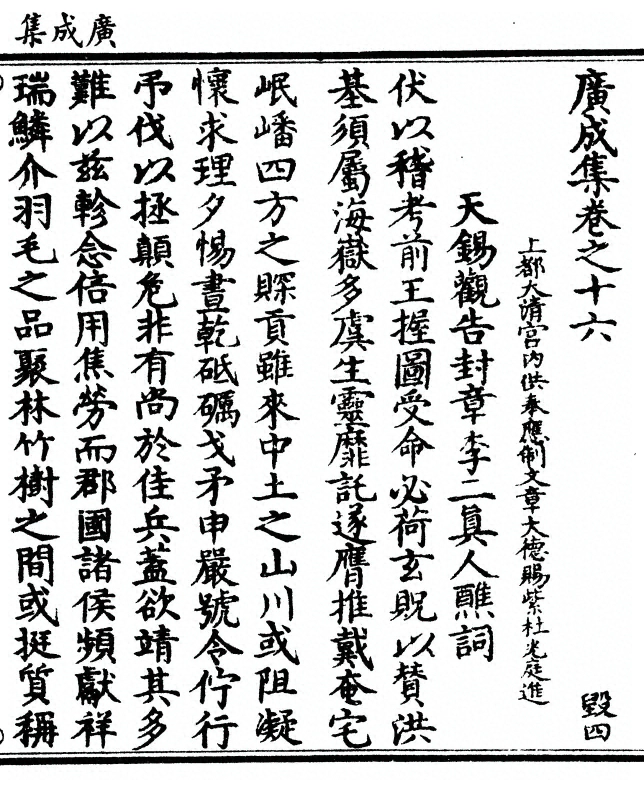 廣成集
廣成集卷之十六
毀四
上都太清宮內供奉應制文章大德賜紫杜光庭進
天錫觀告封章李二真人醮詞
伏以稽考前王握圖受命必荷玄貺以賛洪
基須屬海嶽多虞生靈靡託遂膺推戴奄宅
岷嶓四方之賝貢雖來中土之山川或阻凝
懷求理夕惕晝乾砥礪戈矛申嚴號令佇行
弔伐以拯顛危非有尚於佳兵蓋欲靖其多
難以茲軫念倍用焦勞而郡國諸侯頻獻祥
瑞鱗介羽毛之品聚林竹樹之間或挺質稱